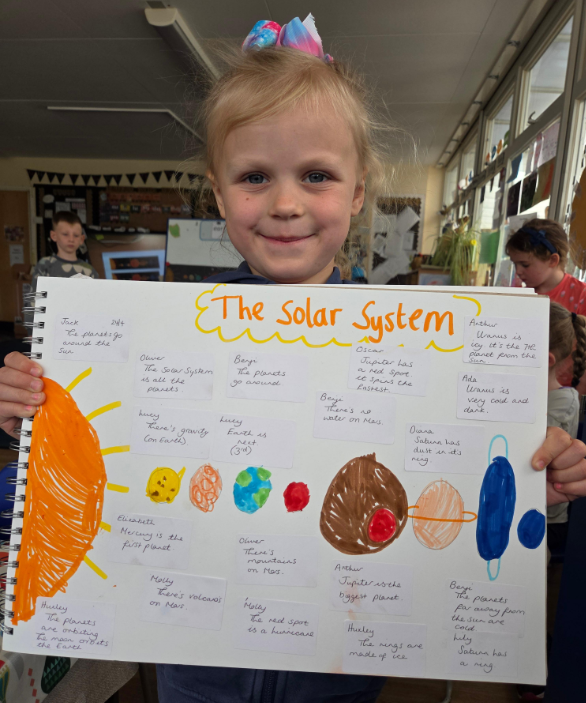 The Solar System
Jack 24/4
The planets go
around the
Sun
Oliver
The Solar System
is all the
planets
Benji
The planets
go around
Oscar
Jupiter has
a red spot
it spins the
fastest
Arthur
Uranus is
icy it's the 7th
planet from the
Sun
Ada
Uranus is
very cold and
dark.
Lucy
There's gravity
(on Earth)
Lucy
Earth is
next
(3rd)
Benji
There's no
water on Mars.
Oiana
Saturn has
dust in it's
ring
Elizabeth
Mercury is the
first planet
Oliver
There's
mountains
on Mars.
Arthur
Jupiter is the
biggest planet.
Molly
There's volcanos
on Mars.
Molly
The red spot
is a hurricane
Hurley
The planets
are orbiting
The moon orbits
the Earth
Hurley
The rings are
made of ice
Benji
The planets
far away from
the sun are
cold
Lily
Saturn has
a ring